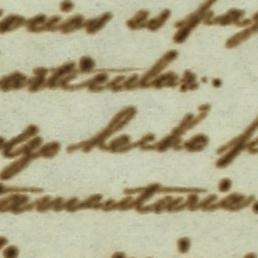 ocios es pa
articular..
lgo hecho p
tamentaria